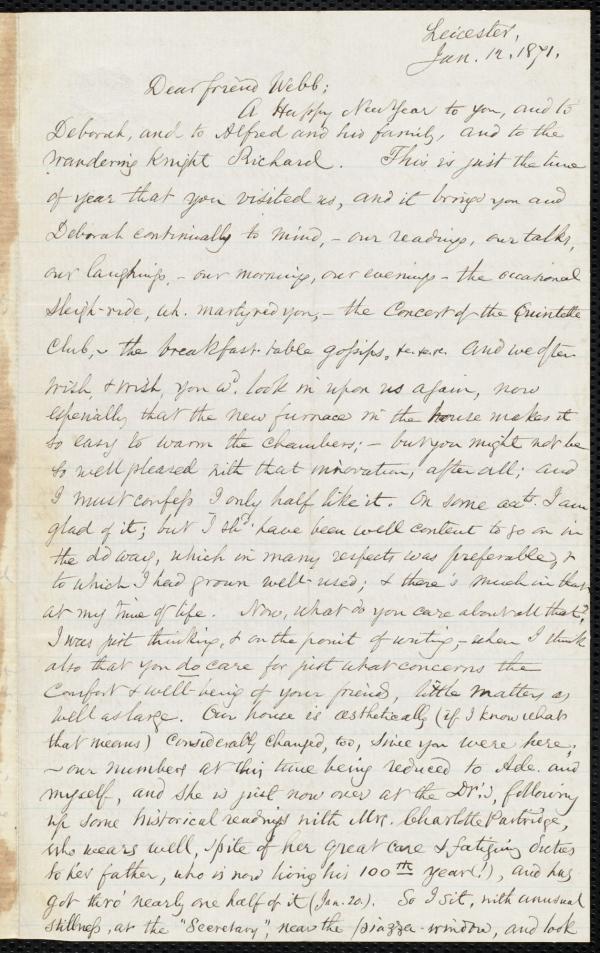 Leicester,
Jan. 12, 1871.
Dear friend Webb;
A Happy New Year to you, and to
Deborah, and to Alfred and his family, and to the
wandering Knight Richard. This is just the time
of year that you visited us, and it brings you and
Deborah continually to mind, - our readings, our talks,
our laughings, - our mornings, our evenings - the occasional
sleigh-ride, wh. martyred you, - the Concert of the Quintette
Club, ~ the breakfast-table gossips, &c. &c. &c. And we often
wish, & wish, you wd. look in upon us again, now
especially that the new furnace in the house makes it
so easy to warm the chambers; - but you might not be
so well pleased with that innovation, after all; and
I must confess I only half like it. On some acts. I am
glad of it; but I shd. have been well content to go on in
the old way, which in many respects was preferable, &
to which I had grown well-used; & there's much in that
at my time of life. Now, what do you care about all that?
I was just thinking, & on the point of writing, - when I think
also that you do care for just what concerns the
Comfort & well-being of your friends, little matters as
well as large. Our house is æsthetically (if I know what
that means) considerably changed, too, since you were here,
~ our numbers at this time being reduced to Ade. and
myself, and she is just now over at the Dr's, following
up some historical readings with Mrs. Charlotte Partridge,
who wears well, spite of her great care & fatiguing duties
to her father, who is now living his 100th year!), and has
got thro' nearly one half of it (Jan. 20.). So I sit, with unusual
stillness, at the "Secretary", near the piazza-window, and look